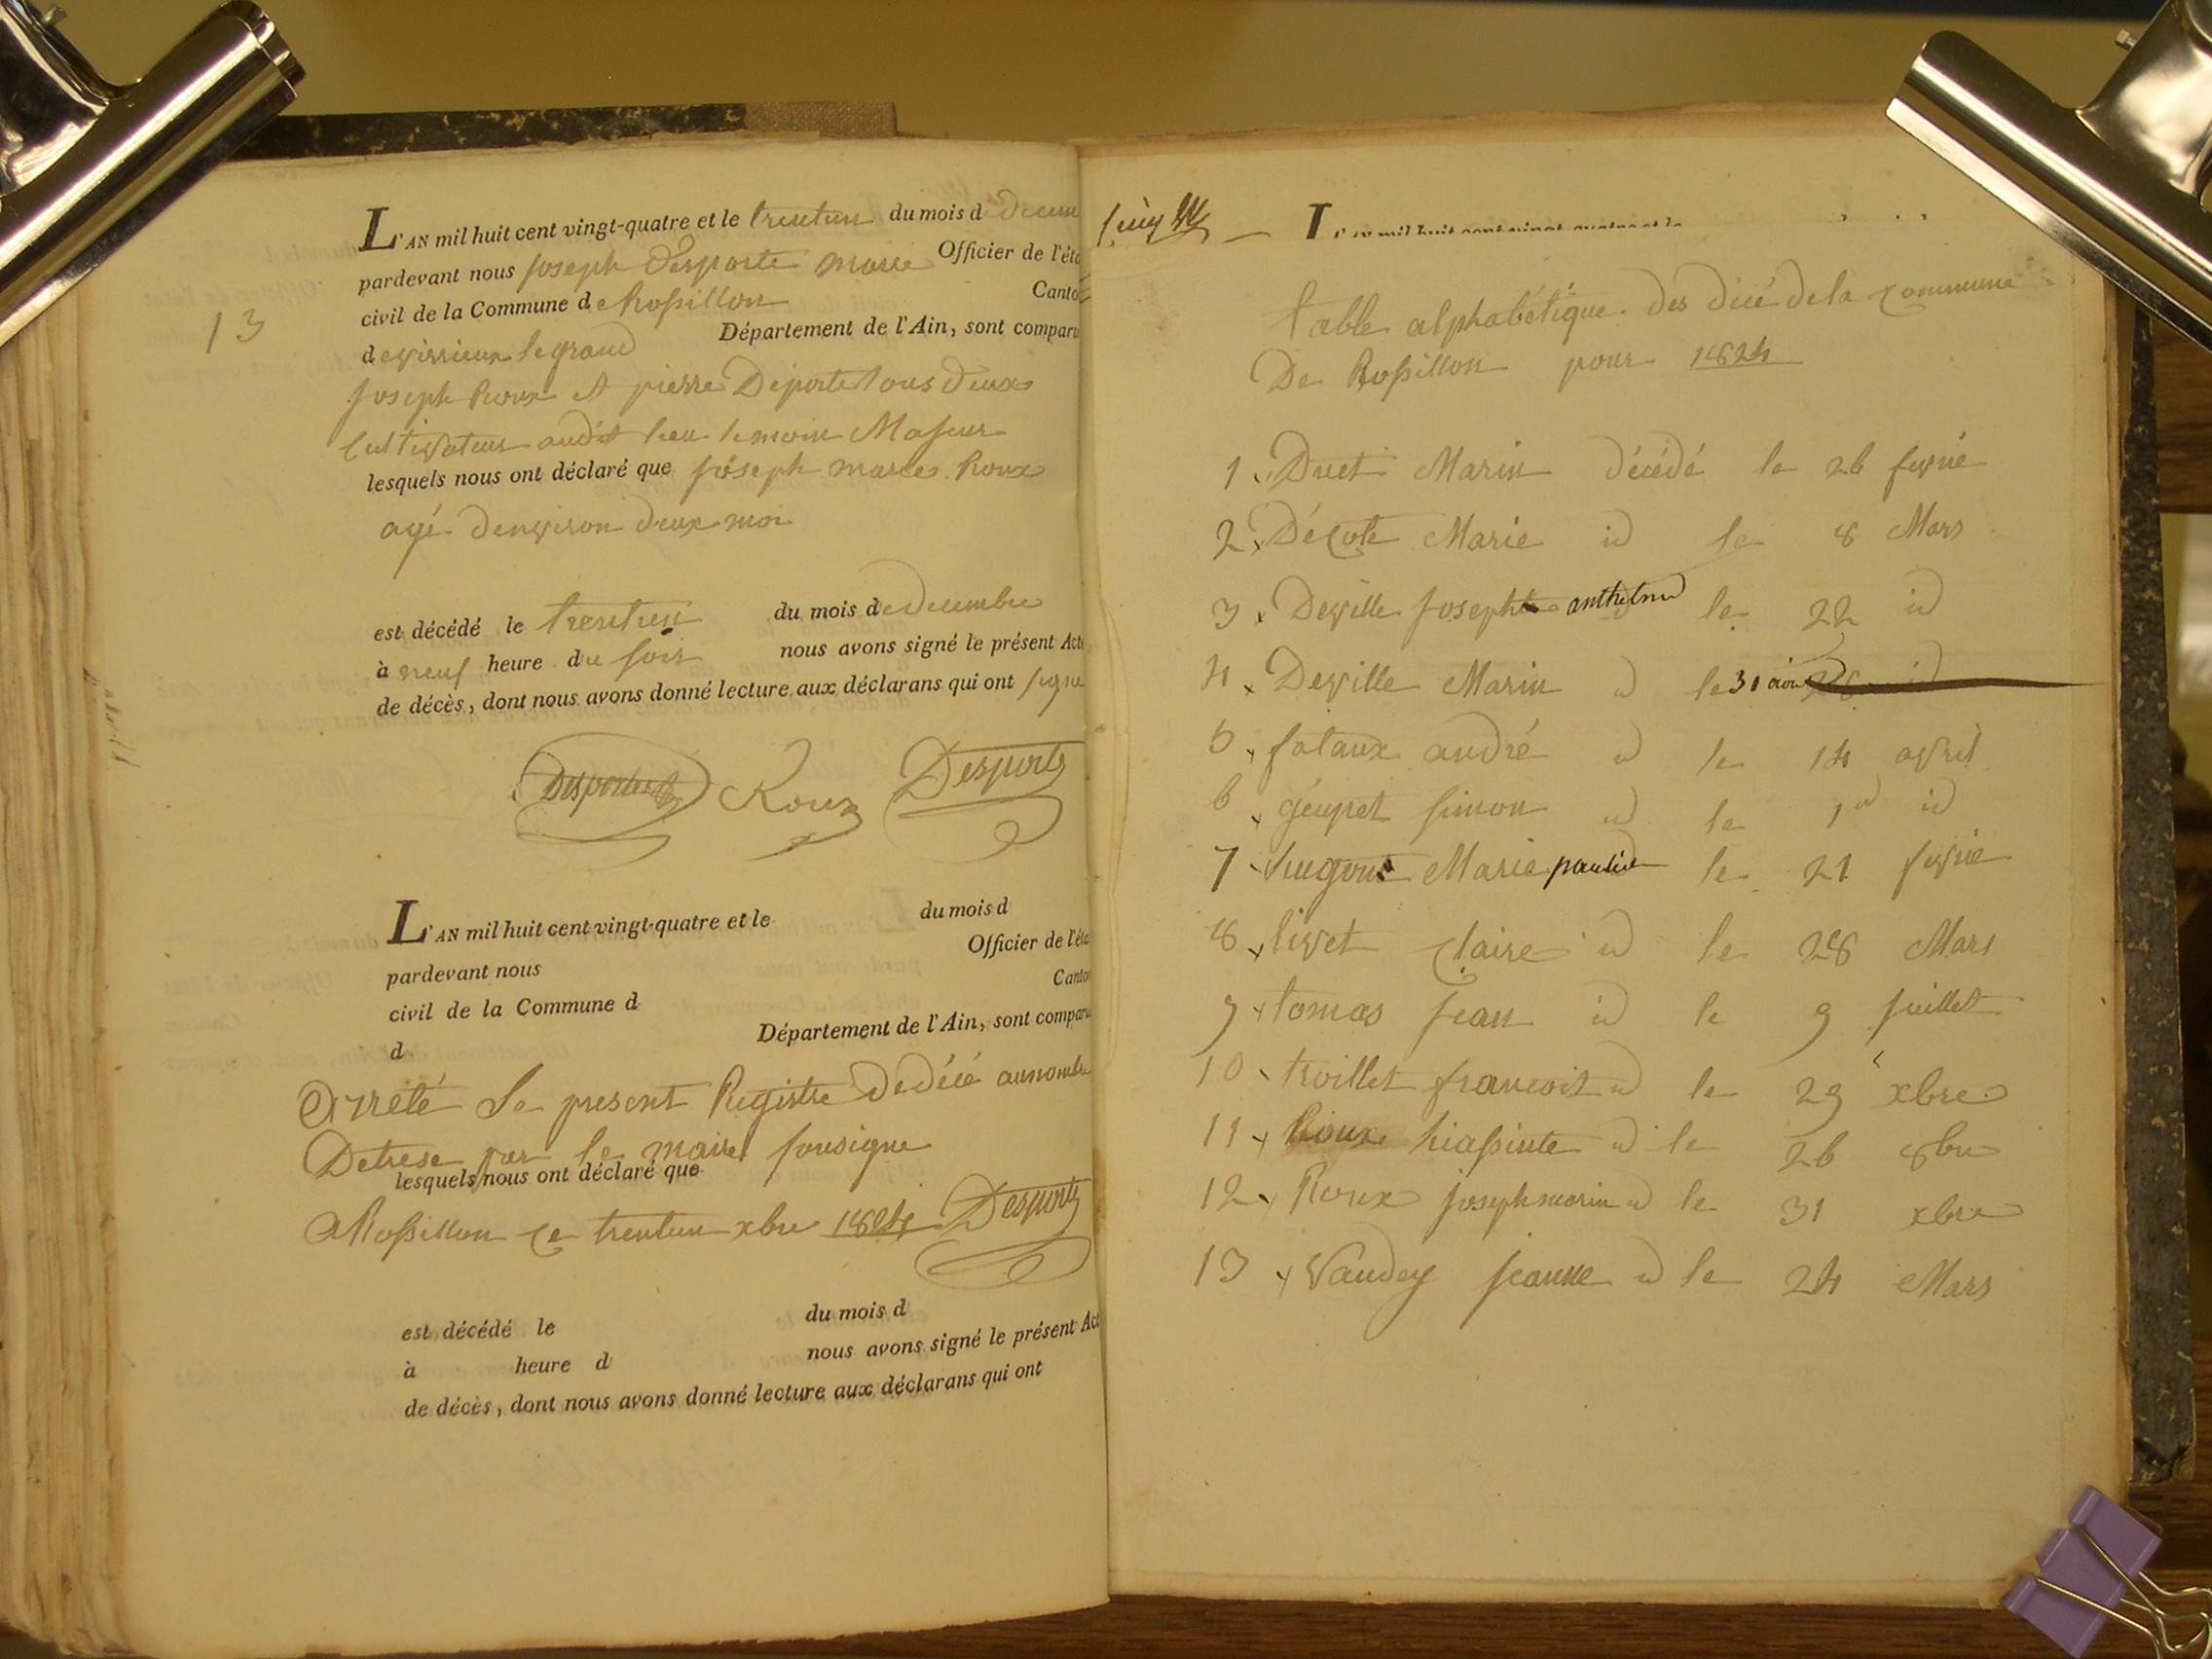 13
L'AN mil huit cent vingt-quatre et le trentun du mois d decem
pardevant nous joseph Desporte maire Officier de l'éta
civil de la Commune de Rossillon Canto
de virieux le grand Département de l'Ain, sont comparu
joseph Roux et pierre Déporte tous deux
Cultivateur audit lieu temoin Majeur
lesquels nous ont déclaré que joseph marie Roux
agé denviron deux moi
est décédé le trentun du mois de decembre
à neuf heure du soir nous avons signé le présent Acte
de décès, dont nous avons donné lecture aux déclarans qui ont signé
Desportes Roux Desporte
L'AN mil huit cent vingt-quatre et le du mois d
pardevant nous Officier de l'éta
civil de la Commune d Canton
d Département de l'Ain, sont comparu
Arrêté Le present Registre de décé aunombre
Detrese par le maire sousigne
lesquels nous ont déclaré que
A Rossillon ce trentun xbre 1824 Desporte
est décédé le du mois d
à heure d nous avons signé le présent Act
de décès, dont nous avons donné lecture aux déclarans qui ont
L'AN mil huit cent vingt-quatre et le
table alphabétique des décé dela commune
De Rossillon pour 1824
1 Duet Marin décédé le 26 fevrié
2 Décote Marie id le 8 Mars
3 Deville joseph anthelme le 22 id
4 Deville Marin id le 31 28 id
5 fataux andré id le 14 avril
6 geupet simon id le 1er id
7 hugon Marie pauline le 21 fevrié
8 livet Claire id le 28 Mars
9 tomas jean id le 9 juillet
10 troillet francoit id le 29 xbre
11 Roux hiassinte id le 26 8bre
12 Roux joseph marin id le 31 xbre
13 Vaudey jeanne id le 24 Mars